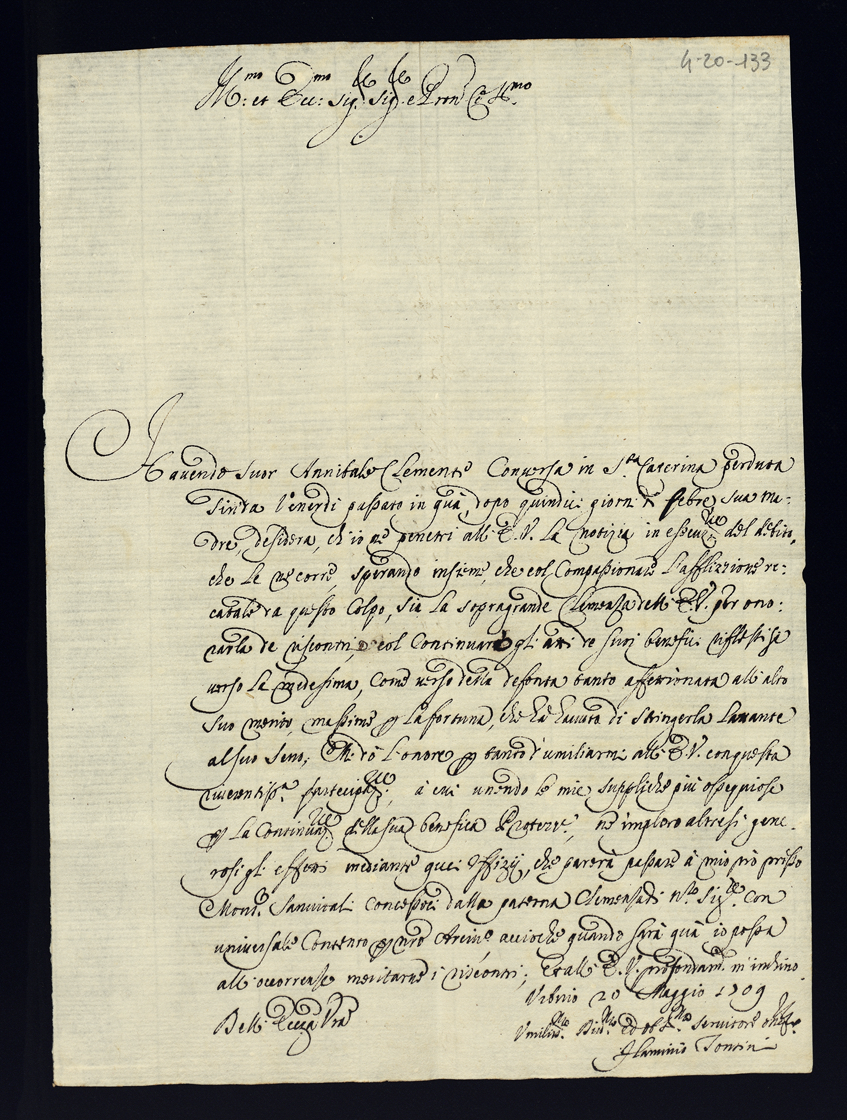 4-20-133
Ill:mo et Ecc:mo Sig.re Sig.re e Pron Col:mo
Havendo Suor Annibale Clemente Conversa in S.ta Caterina perduta
sin da Venerdì passato in quà, dopo quindici giorni di febre, sua ma-
dre, desidera, ch'io ne penetri all'E.V. la notizia in esecuz.ne del debito,
che le ne corre, sperando insieme, che col compassionare l'afflizzione re-
catale da questo colpo, sia la sopragrande Clemenza dell'E.V. per ono-
rarla de riscontri, e col continuare gli atti de suoi benefici riflessi sì
verso la medesima, come verso della defonta tanto affezionata all'alto
suo merito, massime p la fortuna, che hà havuto di stringerla lattante
al suo seno; Mi dò l'onore p tanto d'umiliarmi all'E.V. con questa
riverentiss.a partecipaz.ne, à cui unendo le mie suppliche più ossequiose
p la continuaz.ne della sua benefica Protez.ne, ne imploro altresì gene-
rosi gli effetti mediante quei Uffizij, che parerà passare à mio prò presso
Mons.r Sanvitali concessoci dalla paterna Clemenza di N.ro Sig.re con
universale contento p nro Arciv.o acciòche quando sarà quà io possa
all'occorrenze meritarne i riscontri; Et all'E.V. profondam.te m'inchino
Urbino 20 Maggio 1709
Dell'Ecc.za Vra
Umiliss.mo Div.mo ed obl.mo Servitore
Flaminio Tomini